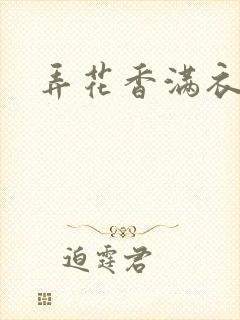 弄花香满衣
迫霆君